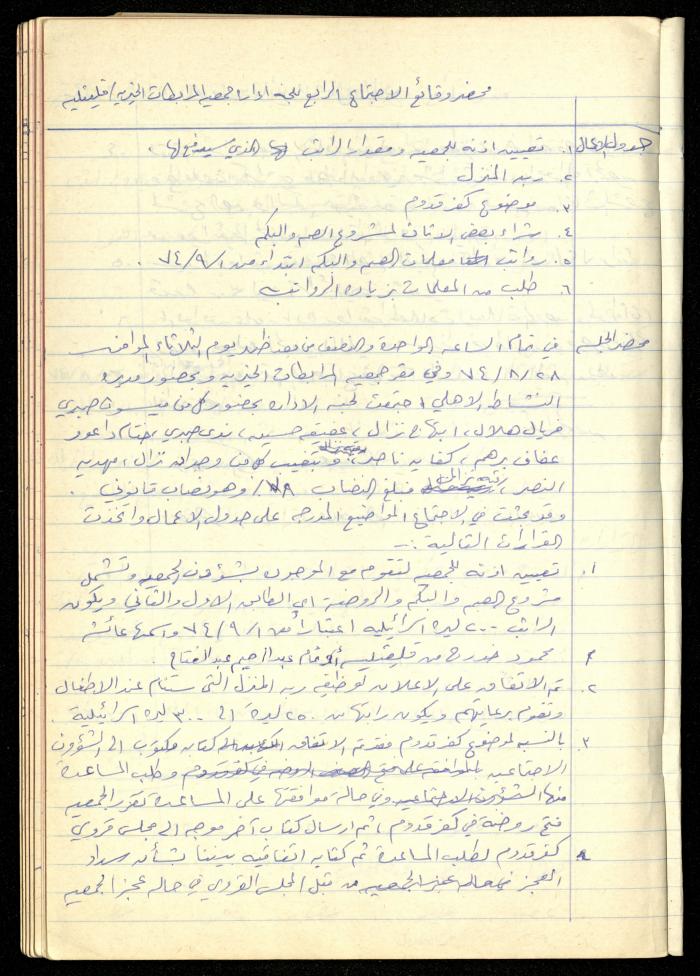 محضر وقائع الاجتماع الرابع للجنة ادارة جمعيه المرابطات الخيريه / قلقيليه
جدول الاعمال ١. تعيين اذنه للجمعيه ومقدار الراتب الذي سيدفع لها.
٢. ربه المنزل
٣. موضوع كفر قدوم
٤. شراء بعض الاثاث لمشروع الصم والبكم
٥. رواتب معلمات الصم والبكم ابتداء من ٧٤/٩/١.
٦. طلب من المعلمات بزياده الرواتب
محضر الجلسه في تمام الساعه الواحدة والنصف من بعد ظهر يوم الثلاثاء الموافق
٧٤/٨/٢٨ وفي مقر جمعيه المرابطات الخيريه وبحضور مديره
النشاط الاهلي اجتمعت لجنة الاداره بحضور كل من ميسون صبري
فريال هلال، ابتهاج نزال، عفيفه حسينه، ندى صبري، ختام داعور
عفاف برهم، كفايه ناصر، وتغيب كل من وجدان نزال، مهديه
النصر، فبلغ النصاب ٧٨٪ وهو نصاب قانوني.
وقد بحثت في الاجتماع المواضيع المدرجه على جدول الاعمال واتخذت
القرارات التالية :-
١. تعيين اذنه للجمعيه لتقوم مع الموجوده بشؤون الجمعيه وتشمل
مشروع الصم والبكم والروضه اي الطابق الاول والثاني ويكون
الراتب ٢٠٠ ليره اسرائيليه اعتبارا من ٧٤/٩/١ واسمها عائشه
محمود خدرج من قلقيليه عبد الرحيم عبد الفتاح.
٢. تم الاتفاق على الاعلان لوظيفه ربه المنزل التي ستنام عند الاطفال
وتقوم برعايتهم ويكون راتبها من ٢٥٠ ليرة الى ٣٠٠ ليره اسرائيلية.
٣. بالنسبه لموضوع كفر قدوم فقد تم الاتفاق كتابه مكتوب الى الشؤون
الاجتماعيه وطلب المساعدة
منها وفي حالة موافقتها على المساعدة تقرر الجمعيه
فتح روضة في كفر قدوم، ثم ارسال كتاب آخر موجه الى مجلس قروي
كفر قدوم لطلب المساعدة ثم كتابه اتفاقيه بيننا بشأن سداد
العجز من قبل المجلس القروي في حاله عجز الجمعيه